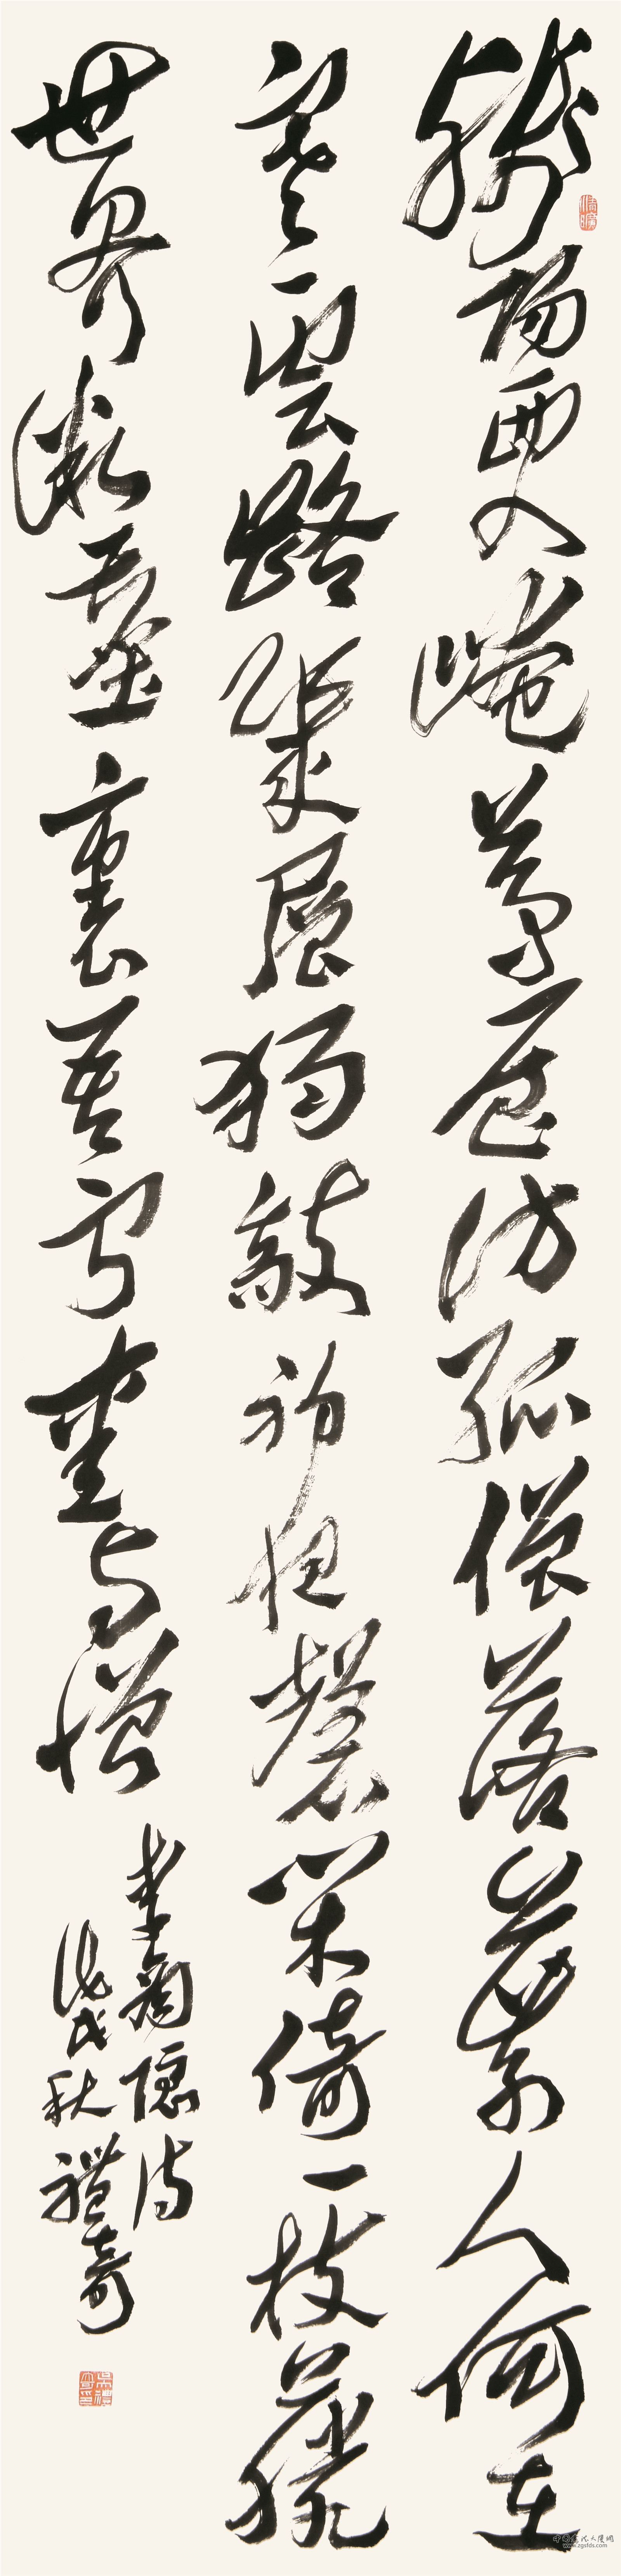 殘陽西入崦茅屋訪孤僧落葉人何在
寒雲路幾層獨敲初夜磬閑倚一枝藤
世界微塵裏吾寧愛與憎
李商隱詩
戊戌秋禮奇
www.zgsfds.com